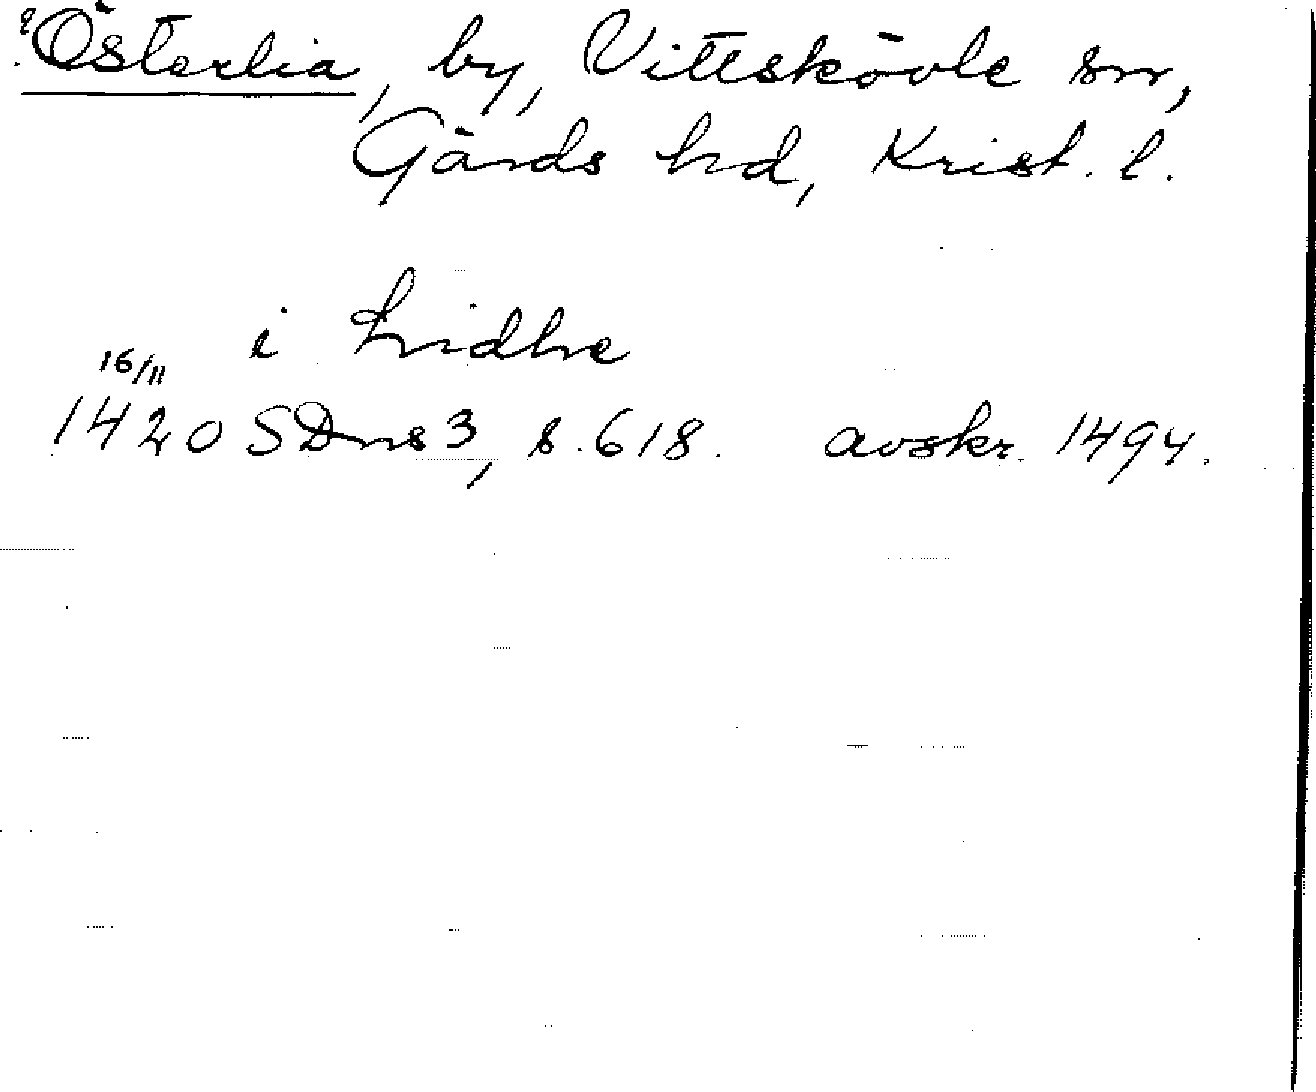 ?Österlia, by, Vittskövle sn,
Gärds hd, Krist. l.
i Lidhe
16/11
1420 SDns 3, s. 618. avskr. 1494.